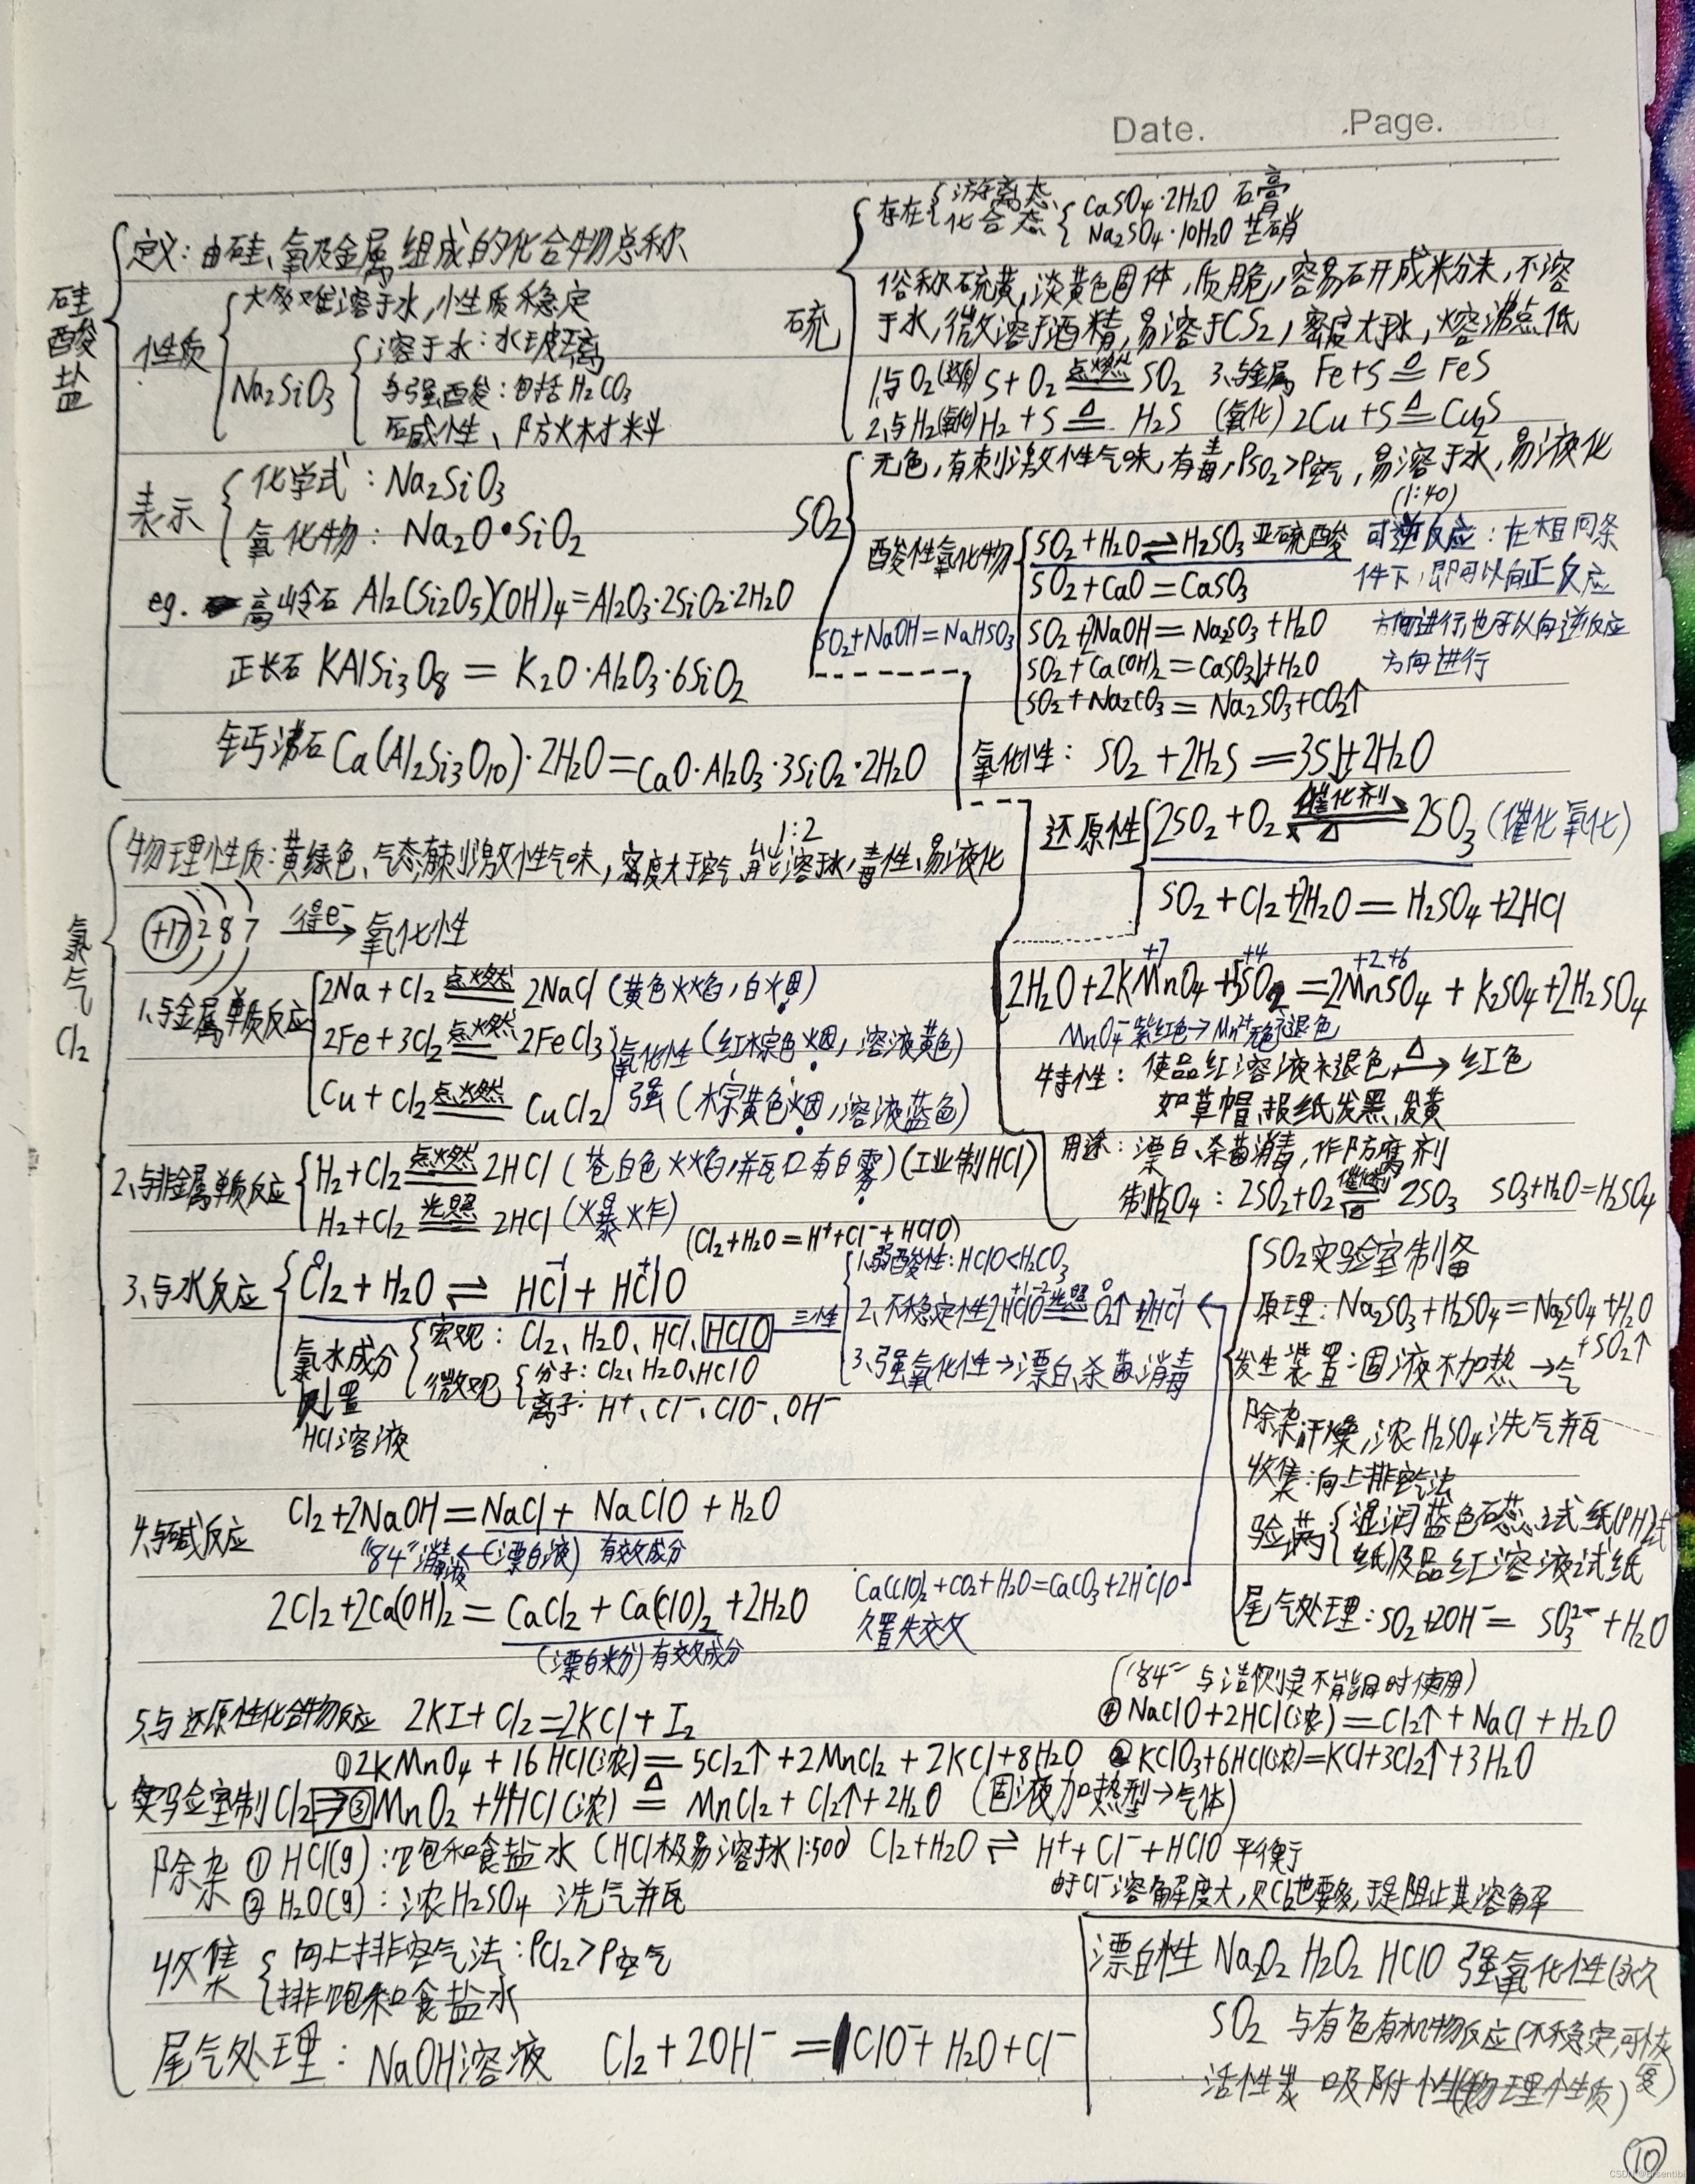 Date. Page.
硅酸盐
定义：由硅、氧及金属组成的化合物总称
性质
大多难溶于水，性质稳定
Na₂SiO₃
溶于水：水玻璃
与强酸：包括H₂CO₃
耐碱性、防火材料
表示
化学式：Na₂SiO₃
氧化物：Na₂O·SiO₂
eg. 高岭石 Al₂(Si₂O₅)(OH)₄=Al₂O₃·2SiO₂·2H₂O
正长石 KAlSi₃O₈ = K₂O·Al₂O₃·6SiO₂
钙沸石 Ca(Al₂Si₃O₁₀)·2H₂O=CaO·Al₂O₃·3SiO₂·2H₂O
硫
存在
游离态
化合态
CaSO₄·2H₂O 石膏
Na₂SO₄·10H₂O 芒硝
俗称硫黄，淡黄色固体，质脆，容易研成粉末，不溶
于水，微溶于酒精，易溶于CS₂，密度大于水，熔沸点低
1、与O₂(还原) S+O₂ 点燃 SO₂ 3、与金属 Fe+S △= FeS
2、与H₂(氧化) H₂+S △= H₂S (氧化) 2Cu+S △= Cu₂S
SO₂
无色，有刺激性气味，有毒，ρSO₂>ρ空气，易溶于水，易液化
(1:40)
酸性氧化物
SO₂+H₂O⇌H₂SO₃ 亚硫酸 可逆反应：在相同条
SO₂+CaO=CaSO₃ 件下，即可以向正反应
SO₂+NaOH=NaHSO₃ SO₂+2NaOH=Na₂SO₃+H₂O 方向进行，也可以向逆反应
SO₂+Ca(OH)₂=CaSO₃↓+H₂O 方向进行
SO₂+Na₂CO₃=Na₂SO₃+CO₂↑
氧化性：SO₂+2H₂S=3S↓+2H₂O
还原性 2SO₂+O₂ 催化剂 ⇌ △ 2SO₃ (催化氧化)
SO₂+Cl₂+2H₂O=H₂SO₄+2HCl
+7 +4 +2 +6
2H₂O+2KMnO₄+5SO₂=2MnSO₄+K₂SO₄+2H₂SO₄
MnO₄⁻紫红色→Mn²⁺无色，退色
特性：使品红溶液退色 △→ 红色
如草帽、报纸发黑、发黄
用途：漂白、杀菌消毒，作防腐剂
制H₂SO₄：2SO₂+O₂ 催化剂 △ 2SO₃ SO₃+H₂O=H₂SO₄
氯气 Cl₂
物理性质：黄绿色、气态有刺激性气味，密度大于空气，能溶于水，毒性、易液化
1:2
+17 2 8 7 得e⁻→ 氧化性
1、与金属单质反应
2Na+Cl₂ 点燃 2NaCl (黄色火焰，白烟)
2Fe+3Cl₂ 点燃 2FeCl₃ 氧化性 (红棕色烟，溶液黄色)
Cu+Cl₂ 点燃 CuCl₂ 强 (棕黄色烟，溶液蓝色)
2、与非金属单质反应
H₂+Cl₂ 点燃 2HCl (苍白色火焰，并瓶口有白雾) (工业制HCl)
H₂+Cl₂ 光照 2HCl (爆炸)
(Cl₂+H₂O=H⁺+Cl⁻+HClO)
3、与水反应
0 -1 +1
Cl₂+H₂O⇌HCl+HClO
氯水成分
宏观：Cl₂、H₂O、HCl、HClO 三性
微观
分子：Cl₂、H₂O、HClO
离子：H⁺、Cl⁻、ClO⁻、OH⁻
久置
HCl溶液
1、弱酸性：HClO<H₂CO₃
+1 -2 0 -1
2、不稳定性 2HClO 光照 O₂↑+2HCl
3、强氧化性→漂白、杀菌、消毒
4、与碱反应
Cl₂+2NaOH=NaCl+NaClO+H₂O
“84”消毒液←(漂白液) 有效成分
2Cl₂+2Ca(OH)₂=CaCl₂+Ca(ClO)₂+2H₂O
(漂白粉) 有效成分
Ca(ClO)₂+CO₂+H₂O=CaCO₃+2HClO
久置失效
SO₂实验室制备
原理：Na₂SO₃+H₂SO₄=Na₂SO₄+H₂O
+SO₂↑
发生装置：固液不加热→气
除杂：干燥，浓H₂SO₄洗气瓶
收集：向上排空气法
验满
湿润蓝色石蕊试纸(PH试
纸)及品红溶液试纸
尾气处理：SO₂+2OH⁻=SO₃²⁻+H₂O
5、与还原性化合物反应 2KI+Cl₂=2KCl+I₂
(“84”与洁厕灵不能同时使用)
④NaClO+2HCl(浓)=Cl₂↑+NaCl+H₂O
①2KMnO₄+16HCl(浓)=5Cl₂↑+2MnCl₂+2KCl+8H₂O ②KClO₃+6HCl(浓)=KCl+3Cl₂↑+3H₂O
实验室制Cl₂⇒③MnO₂+4HCl(浓) △= MnCl₂+Cl₂↑+2H₂O (固液加热型→气体)
除杂 ①HCl(g)：饱和食盐水 (HCl极易溶于水1:500) Cl₂+H₂O⇌H⁺+Cl⁻+HClO 平衡
由于Cl⁻溶解度大，则Cl⁻也要多，于是阻止其溶解
②H₂O(g)：浓H₂SO₄ 洗气瓶
收集
向上排空气法：ρCl₂>ρ空气
排饱和食盐水
尾气处理：NaOH溶液 Cl₂+2OH⁻=ClO⁻+H₂O+Cl⁻
漂白性 Na₂O₂ H₂O₂ HClO 强氧化性(永久
SO₂ 与有色有机物反应(不稳定，可恢
复)
活性炭 吸附性(物理性质)
10